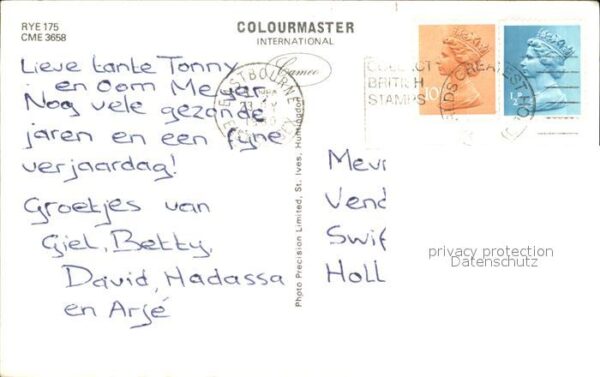 RYE 175
CME 3658
COLOURMASTER
INTERNATIONAL
Cameo
Lieve tante Tonny
en Oom Meyer
Nog vele gezonde
jaren en een fyne
verjaardag!
Groetjes van
Giel, Betty,
David, Hadassa
en Arjé
Photo Precision Limited, St. Ives, Huntingdon
EASTBOURNE
BRITISH
STAMPS
10
½
Mevr
Vend
Swif
Holl
privacy protection
Datenschutz